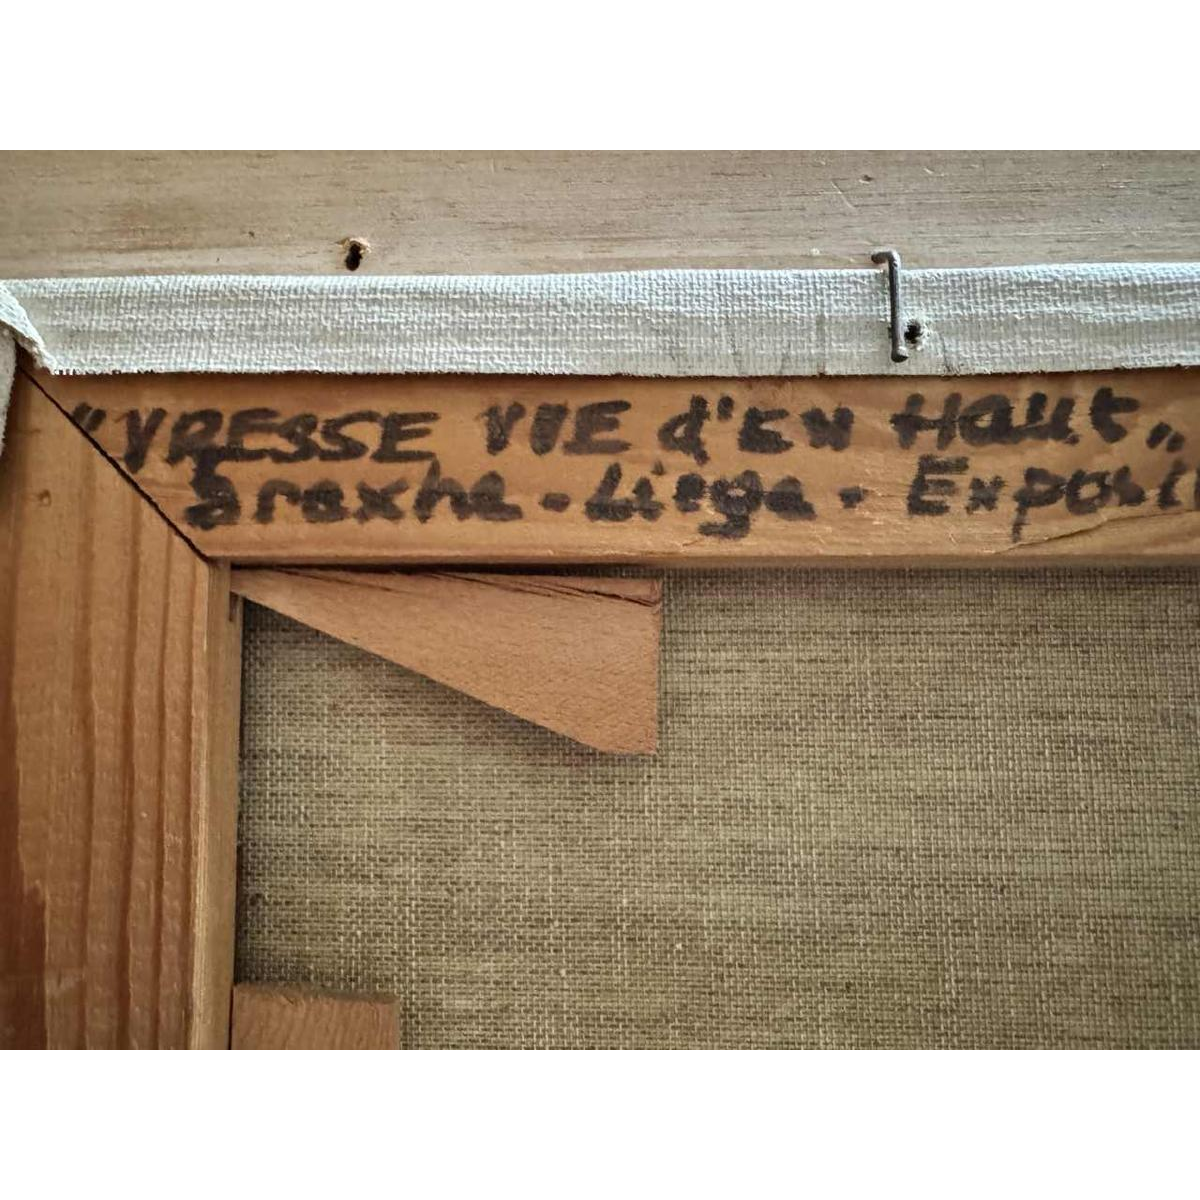 "VRESSE VIE d'EN HAUt"
Sraxhe - Liège - Exposi